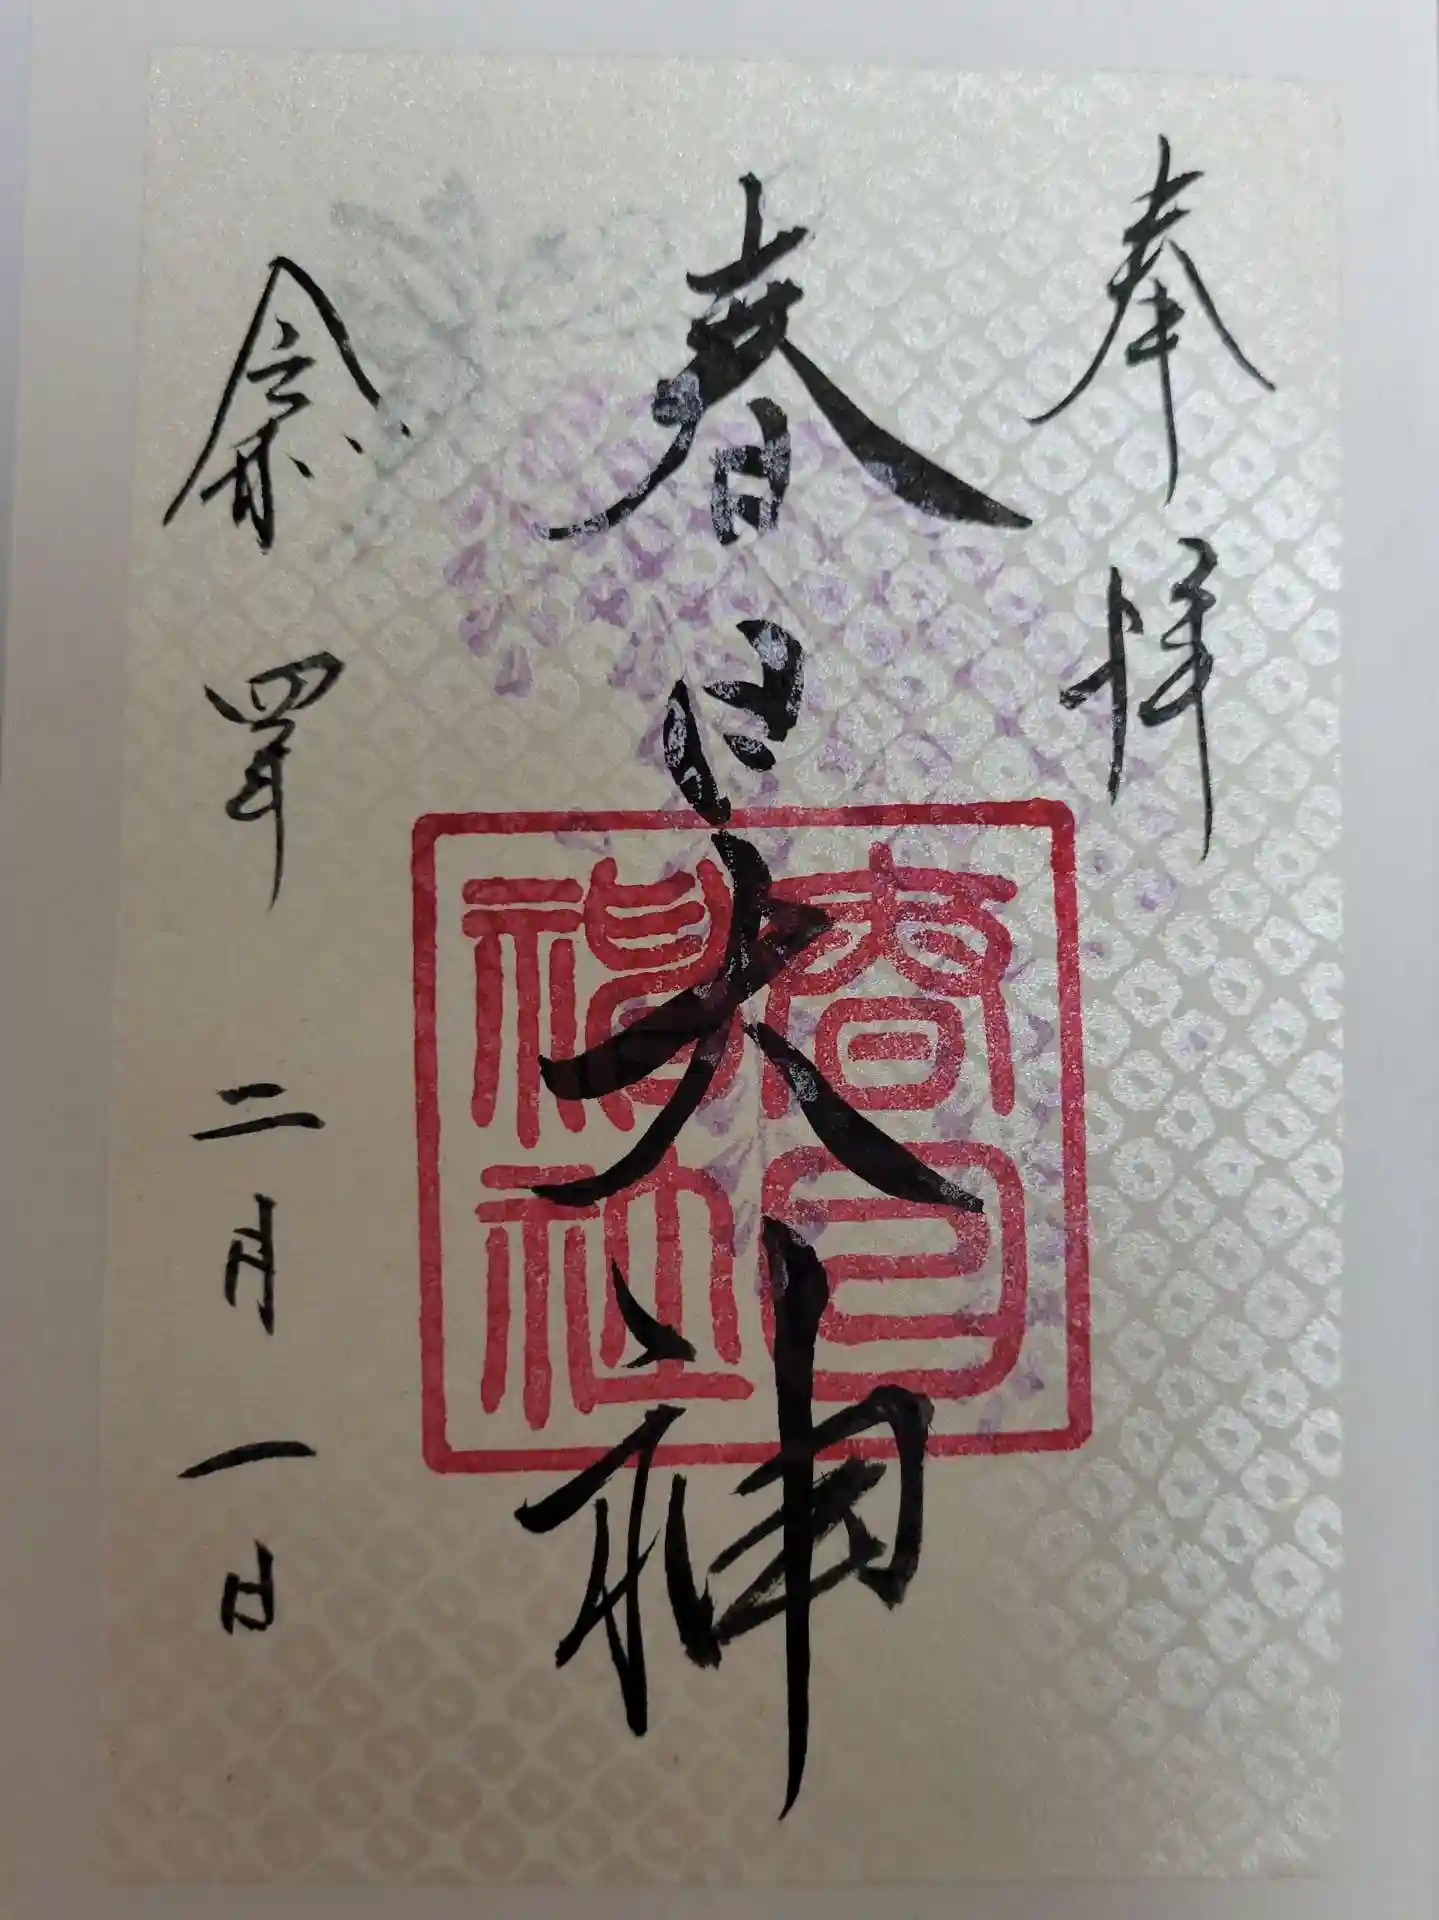 奉拝
春日大神
春日
神社
令和四年二月一日